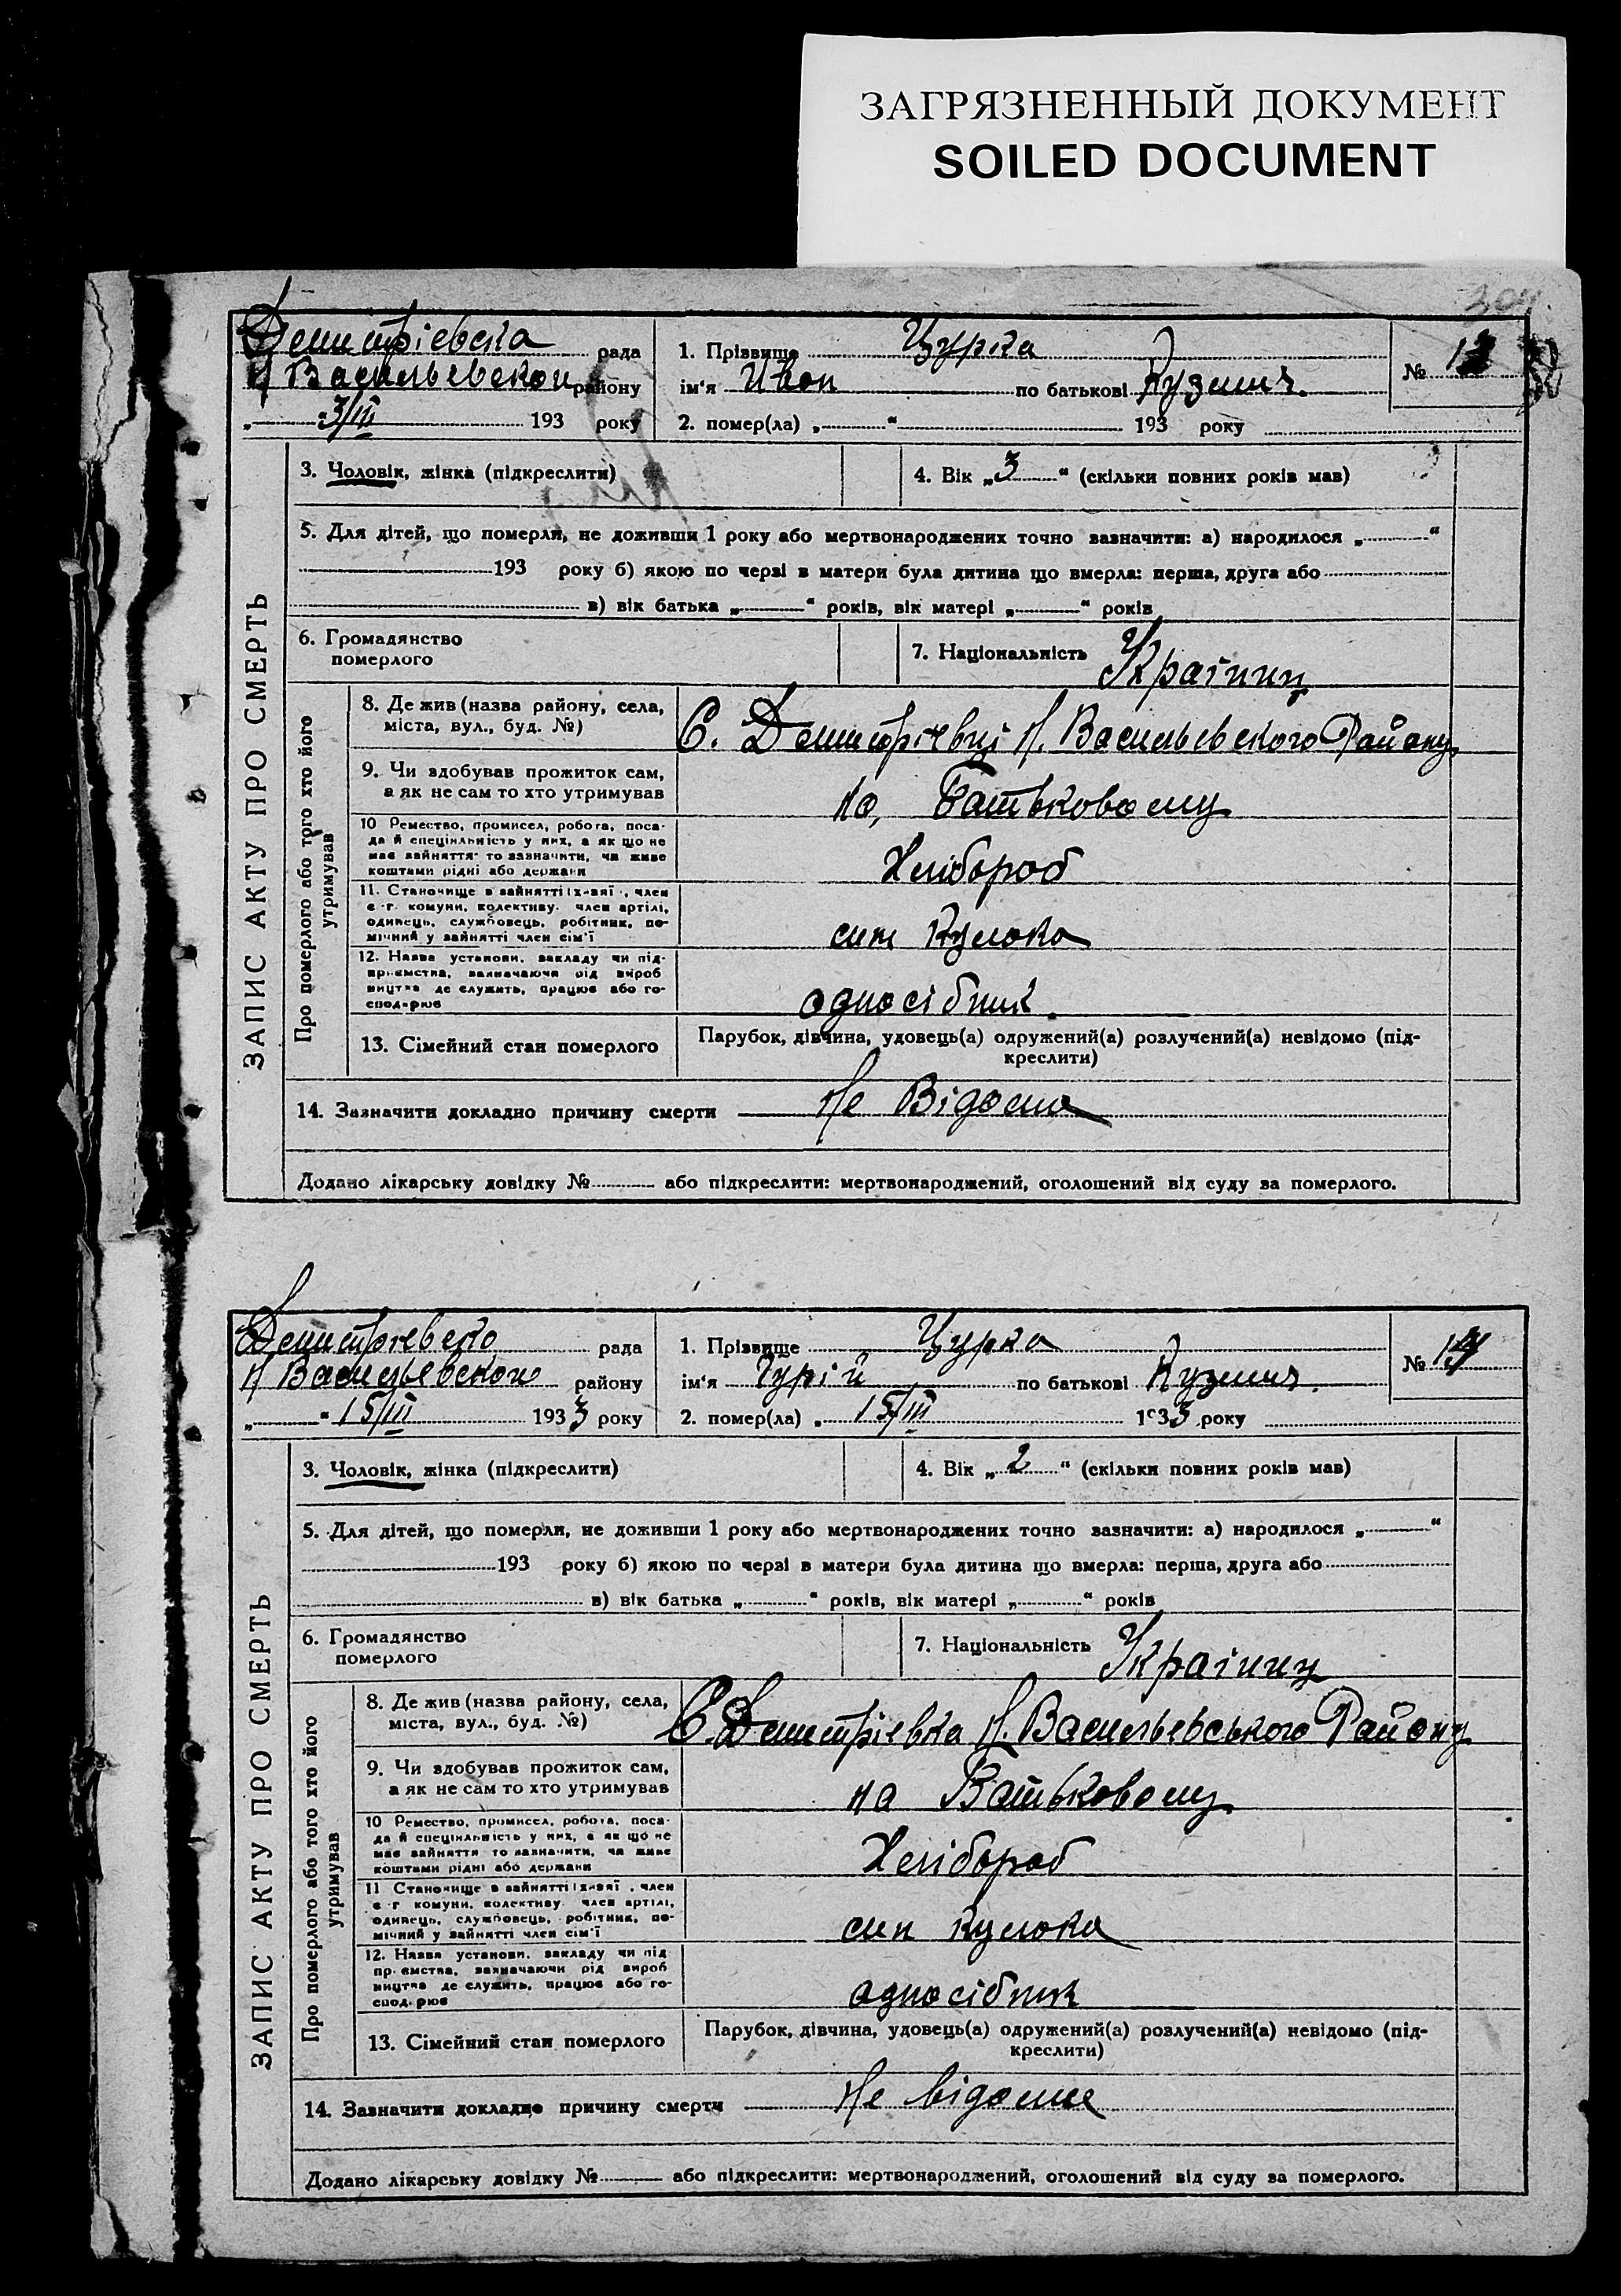 ЗАГРЯЗНЕННЫЙ ДОКУМЕНТ
SOILED DOCUMENT
ЗАПИС АКТУ ПРО СМЕРТЬ
Демитріевска рада
Н Васильевского району
„ 3/III 193 року
1. Прізвище Цурка
ім'я Иван по батькові Кузмич.
2. помер(ла) „ “ 193 року
№
3. Чоловік, жінка (підкреслити)
4. Вік „3“ (скільки повних років мав)
5. Для дітей, що померли, не доживши 1 року або мертвонароджених точно зазначити: а) народилося „ “
193 року б) якою по черзі в матери була дитина що вмерла: перша, друга або
в) вік батька „ “ років, вік матері „ “ років
6. Громадянство
померлого
7. Національність Українц
Про померлого або того хто його
утримував
8. Де жив (назва району, села,
міста, вул., буд. №)
С. Демитрієвці Н. Васильевского Району
9. Чи здобував прожиток сам,
а як не сам то хто утримував
на, Батьковому
10 Ремество, промисел, робота, поса-
да й спеціяльність у них, а як що не
має зайняття то зазначити, чи живе
коштами рідні або держави
Хлібороб
11. Становище в зайнятті (хазяї, член
с.-г. комуни, колективу. член артілі,
одинець, службовець, робітник, по-
мічний у зайнятті член сім'ї
син Кулака
12. Назва установи, закладу чи під-
приємства, зазначаючи рід вироб
ництва де служить, працює або го-
сподарює
односібник.
13. Сімейний стан померлого
Парубок, дівчина, удовець(а) одружений(а) розлучений(а) невідомо (під-
креслити)
14. Зазначити докладно причину смерти Не Відома
Додано лікарську довідку № або підкреслити: мертвонароджений, оголошений від суду за померлого.
ЗАПИС АКТУ ПРО СМЕРТЬ
Демитрієвска рада
Н Васильевского району
„ “ 15/III 1933 року
1. Прізвище Цурка
ім'я Гурій по батькові Кузмич.
2. помер(ла) „ 15/III 1933 року
№ 14
3. Чоловік, жінка (підкреслити)
4. Вік „2“ (скільки повних років мав)
5. Для дітей, що померли, не доживши 1 року або мертвонароджених точно зазначити: а) народилося „ “
193 року б) якою по черзі в матери була дитина що вмерла: перша, друга або
в) вік батька „ “ років, вік матері „ “ років
6. Громадянство
померлого
7. Національність Українц
Про померлого або того хто його
утримував
8. Де жив (назва району, села,
міста, вул., буд. №)
С. Демитрієвка Н. Васильевського Району
9. Чи здобував прожиток сам,
а як не сам то хто утримував
на Батьковому
10 Ремество, промисел, робота, поса-
да й спеціяльність у них, а як що не
має зайняття то зазначити, чи живе
коштами рідні або держави
Хлібороб
11 Становище в зайнятті (хазяї, член
с.-г комуни, колективу. член артілі,
одинець, службовець, робітник, по-
мічний у зайнятті член сім'ї
син кулака
12. Назва установи, закладу чи під
приємства, зазначаючи рід вироб
ництва де служить, працює або го-
сподарює
односібник
13. Сімейний стан померлого
Парубок, дівчина, удовець(а) одружений(а) розлучений(а) невідомо (під-
креслити)
14. Зазначити докладно причину смерти Не відоме
Додано лікарську довідку № або підкреслити: мертвонароджений, оголошений від суду за померлого.